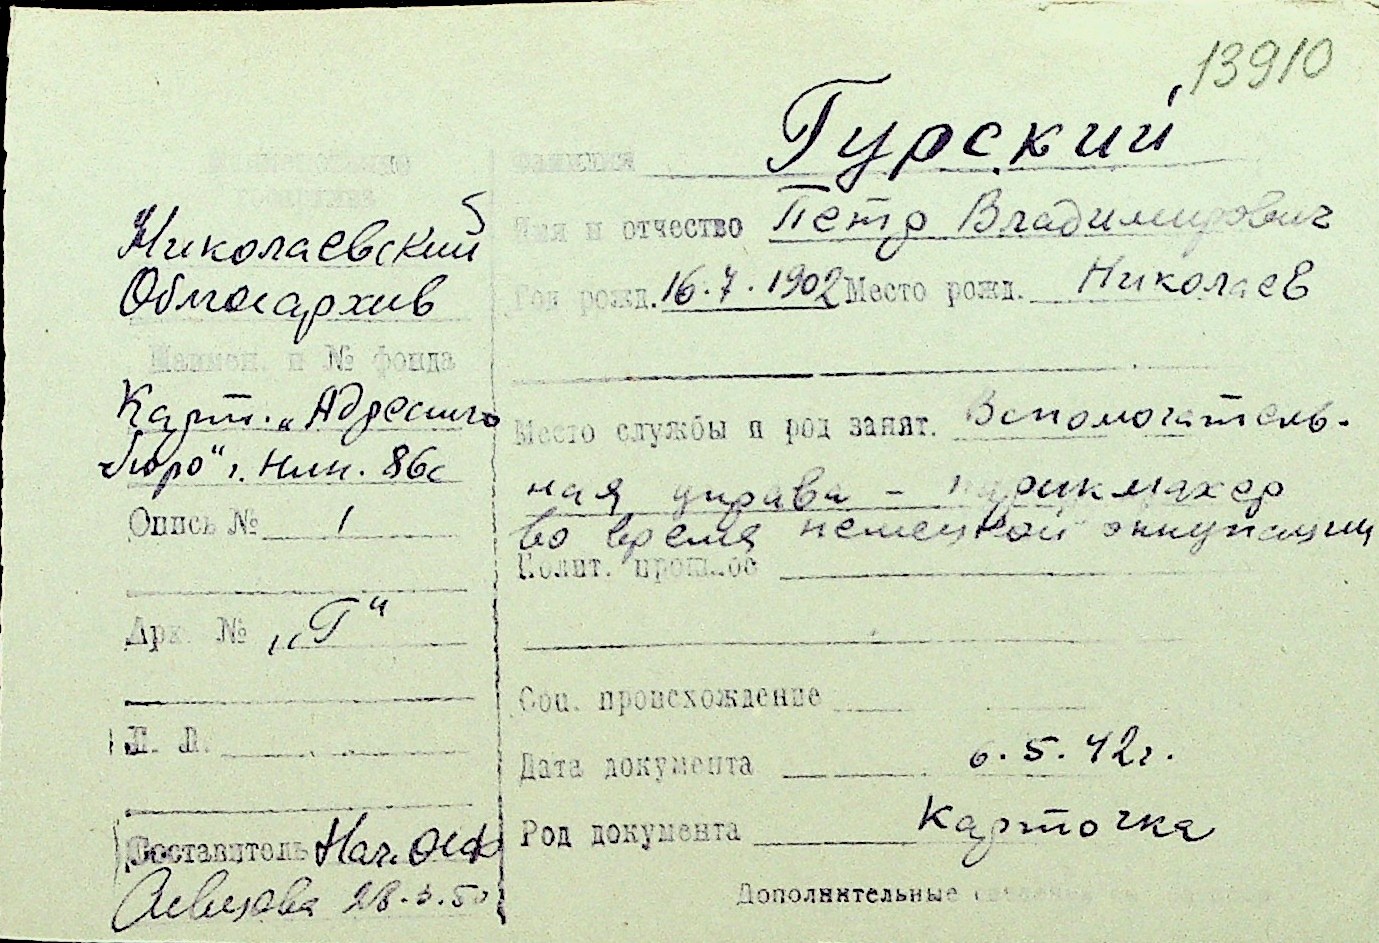 13910
Гурский
Фамилия
Николаевский
Облгосархив
Имя и отчество Петр Владимирович
Год рожд. 16.7.1902 Место рожд. Николаев
Наимен. и № фонда
Карт. „Адресного
бюро" г. Ник. 86с
Место службы и род занят. Вспомогатель-
ная управа - парикмахер
во время немецкой оккупации
Опись № 1
Полит. прошлое
Арх. № „Г"
Соц. происхождение
Л. Л.
Дата документа 6.5.42г.
Род документа Карточка
Составитель Нач. ОСФ
28.3.50
Дополнительные